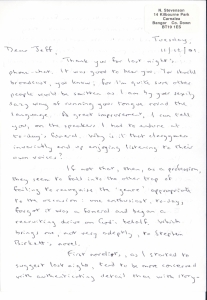 N. Stevenson
14 Kilbourne Park
Carnalea
Bangor Co. Down
BT19 1ES
Tuesday,
11/12/81
Dear Jeff,
Thank you for last night's
phone-chat. It was good to hear you. You should
broadcast, you know, for I'm quite sure other
people would be smitten as I am by your really
way of running your tongue round the
language. A great improvement, I can tell
you, on the speakers I had to endure at
to-day's funeral. Why is it that clergymen
invariably end up enjoying listening to their
own voices?
If not that, then, as a profession,
they seem to fall into the other trap of
failing to recognise the 'genre' appropriate
to the occasion: one enthusiast, to-day,
forgot it was a funeral and began a
recruiting drive on God's behalf. Which
brings me, not very adeptly, to Stephen
novel.
First novelists, as I started to
suggest last night, tend to be more concerned
with authenticating detail than with story-